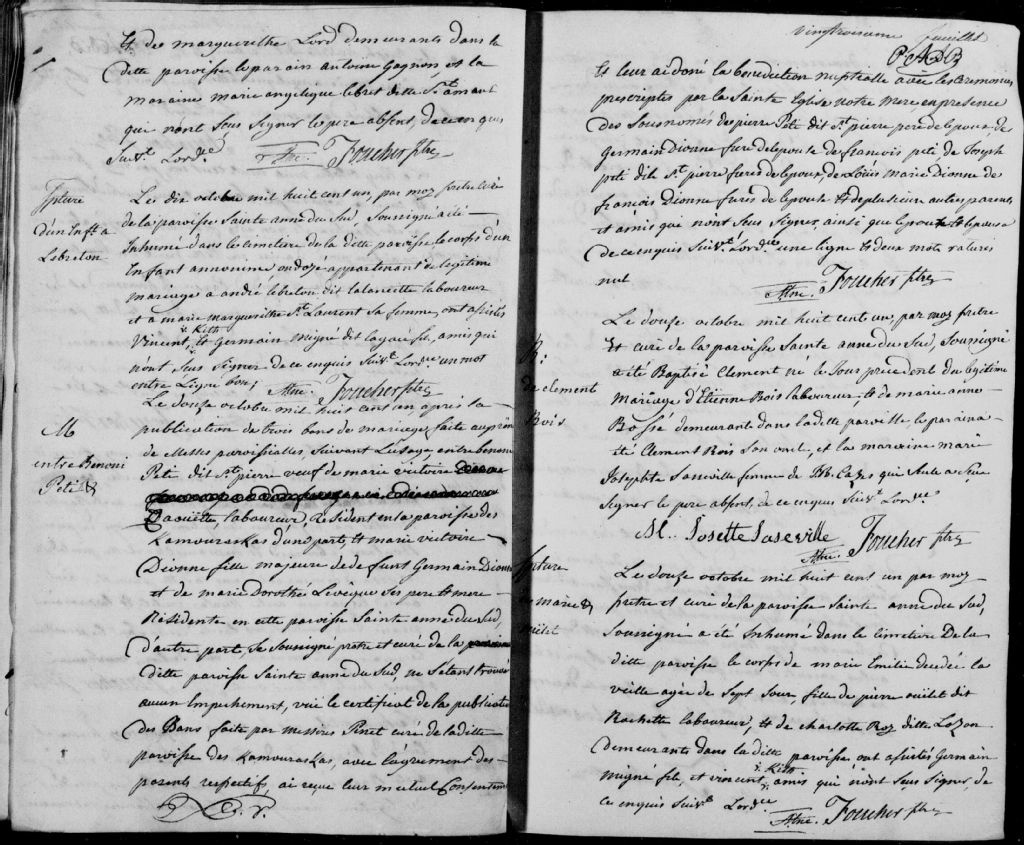 Et de marguerithe Lord demeurants dans la
ditte paroisse le parain antoine Gagnon et la
maraine marie angelique lebret ditte St. amant
qui n'ont sçeus signer le pere absent, de ce enquis
Suivt. Lordce. Atne. Foucher ptre
Spture
d'un Enft a
Lebreton
Le dix octobre mil huit cent un, par moy pretre curé
de la paroisse Sainte anne du Sud, Soussigné a été
Inhumé dans le cimetiere de la ditte paroisse le corps d'un
Enfant annonime ondoyé appartenant de legitime
mariage a andré lebreton dit lalancette laboureur
et a marie marguerithe St. Laurent sa femme, ont assistés
Vincent Keth Et Germain migné dit lagacé fil, amis qui
n'ont sçeus signer de ce enquis Suivt. Lordce un mot
entre Ligne bon, Atne. Foucher ptre
M
entre Benoni
Peté &
Le douze octobre mil huit cent un après la
publication de trois bans de mariage, faite au prône
de Messes paroissialles, Suivant L'usage entre benoni
Peté dit St. pierre veuf de marie victoire
Laouillette, laboureur, Resident en la paroisse des
Kamouraskas d'une part, et marie victoire
Dionne fille majeure de defunt Germain Dionne
et de marie Dorothée Levêque ses pere et mere
Residente en cette paroisse Sainte anne du Sud,
d'autre part, Je soussigné pretre et curé de la
ditte paroisse Sainte anne du Sud, ne setant trouvé
aucun Empechement, vûe le certificat de la publication
des Bans faite par messire Pinet curé de la ditte
paroisse des Kamouraskas, avec l'agrement des
parents respectifs, ai reçue leur mutuel Consentement
vingtroisieme feuillet
Et leur ai doné la benediction nuptialle avec les ceremonies
prescriptes par la Sainte Eglise notre Mere en presence
des Sousnomés de pierre Peté dit St. pierre, pere de lepoux, de
Germain Dionne frere de lepouse de françois peté, de Joseph
peté dit St. pierre freres de lepoux, de Loüis marie Dionne de
françois Dionne freres de lepouse et de plusieur autres parents
et amis qui n'ont sçeus signer, ainsi que lepoux et lepouse
de ce enquis Suivt. Lordce une ligne et deux mots raturés
nul
Atne. Foucher ptre
B:
de clement
Bois
Le douze octobre mil huit cent un, par moy pretre
Et curé de la paroisse Sainte anne du Sud, Soussigné
a été Baptisé Clement né le Jour precedent du legitime
Mariage d'Etienne Bois laboureur et de marie anne
Bossé demeurants dans la ditte paroisse, le parain a
été Clement Bois son oncle, et la maraine marie
Josephte Saseville femme de qui Seule a sçue
Signer le pere absent, de ce enquis Suivt. Lordce
M. Josette Saseville Atne. Foucher ptre
Spture
de marie E
ouilet
Le douze octobre mil huit cent un par moy
pretre et curé de la paroisse Sainte anne du Sud,
Soussigné a été Inhumé dans le cimetiere De la
ditte paroisse le corps de marie Emilie decedé la
veille agée de Sept Jour, fille de pierre ouilet dit
Rachette laboureur, et de charlotte Roy ditte Lozon
demeurants dans la ditte paroisse ont assistés Germain
migné fil, et vincent Keth, amis qui n'ont sçeus Signer, de
ce enquis Suivt. Lordce Atne. Foucher ptre